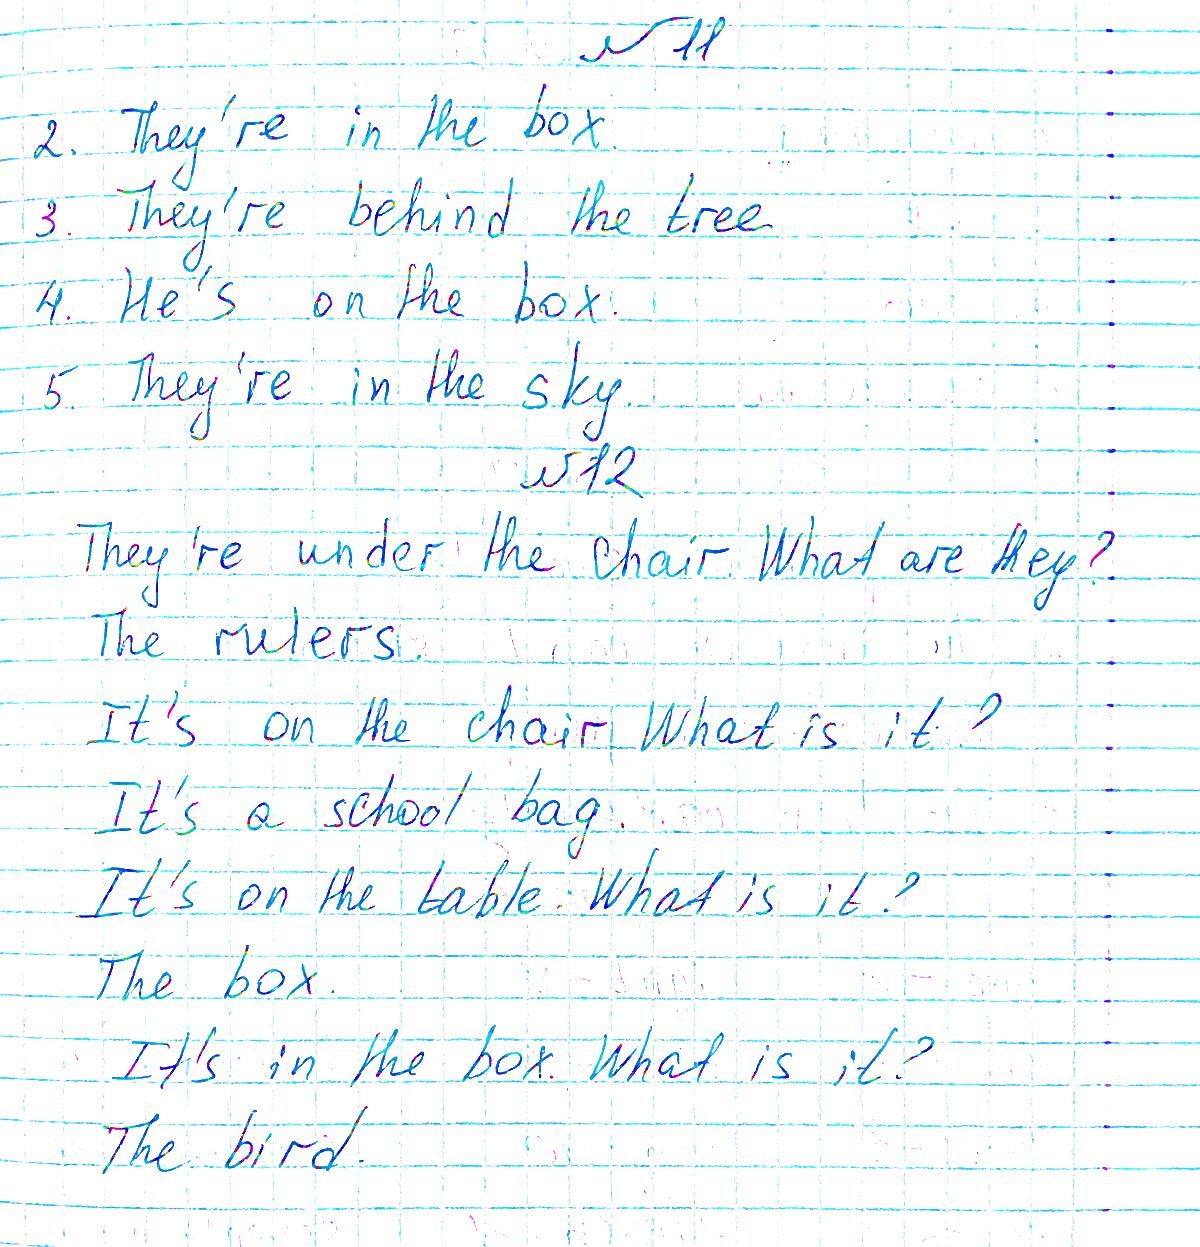 № 11
2. They're in the box.
3. They're behind the tree
4. He's on the box.
5. They're in the sky.
№ 12
They're under the chair. What are they?
The rulers.
It's on the chair. What is it?
It's a school bag.
It's on the table. What is it?
The box.
It's in the box. What is it?
The bird.